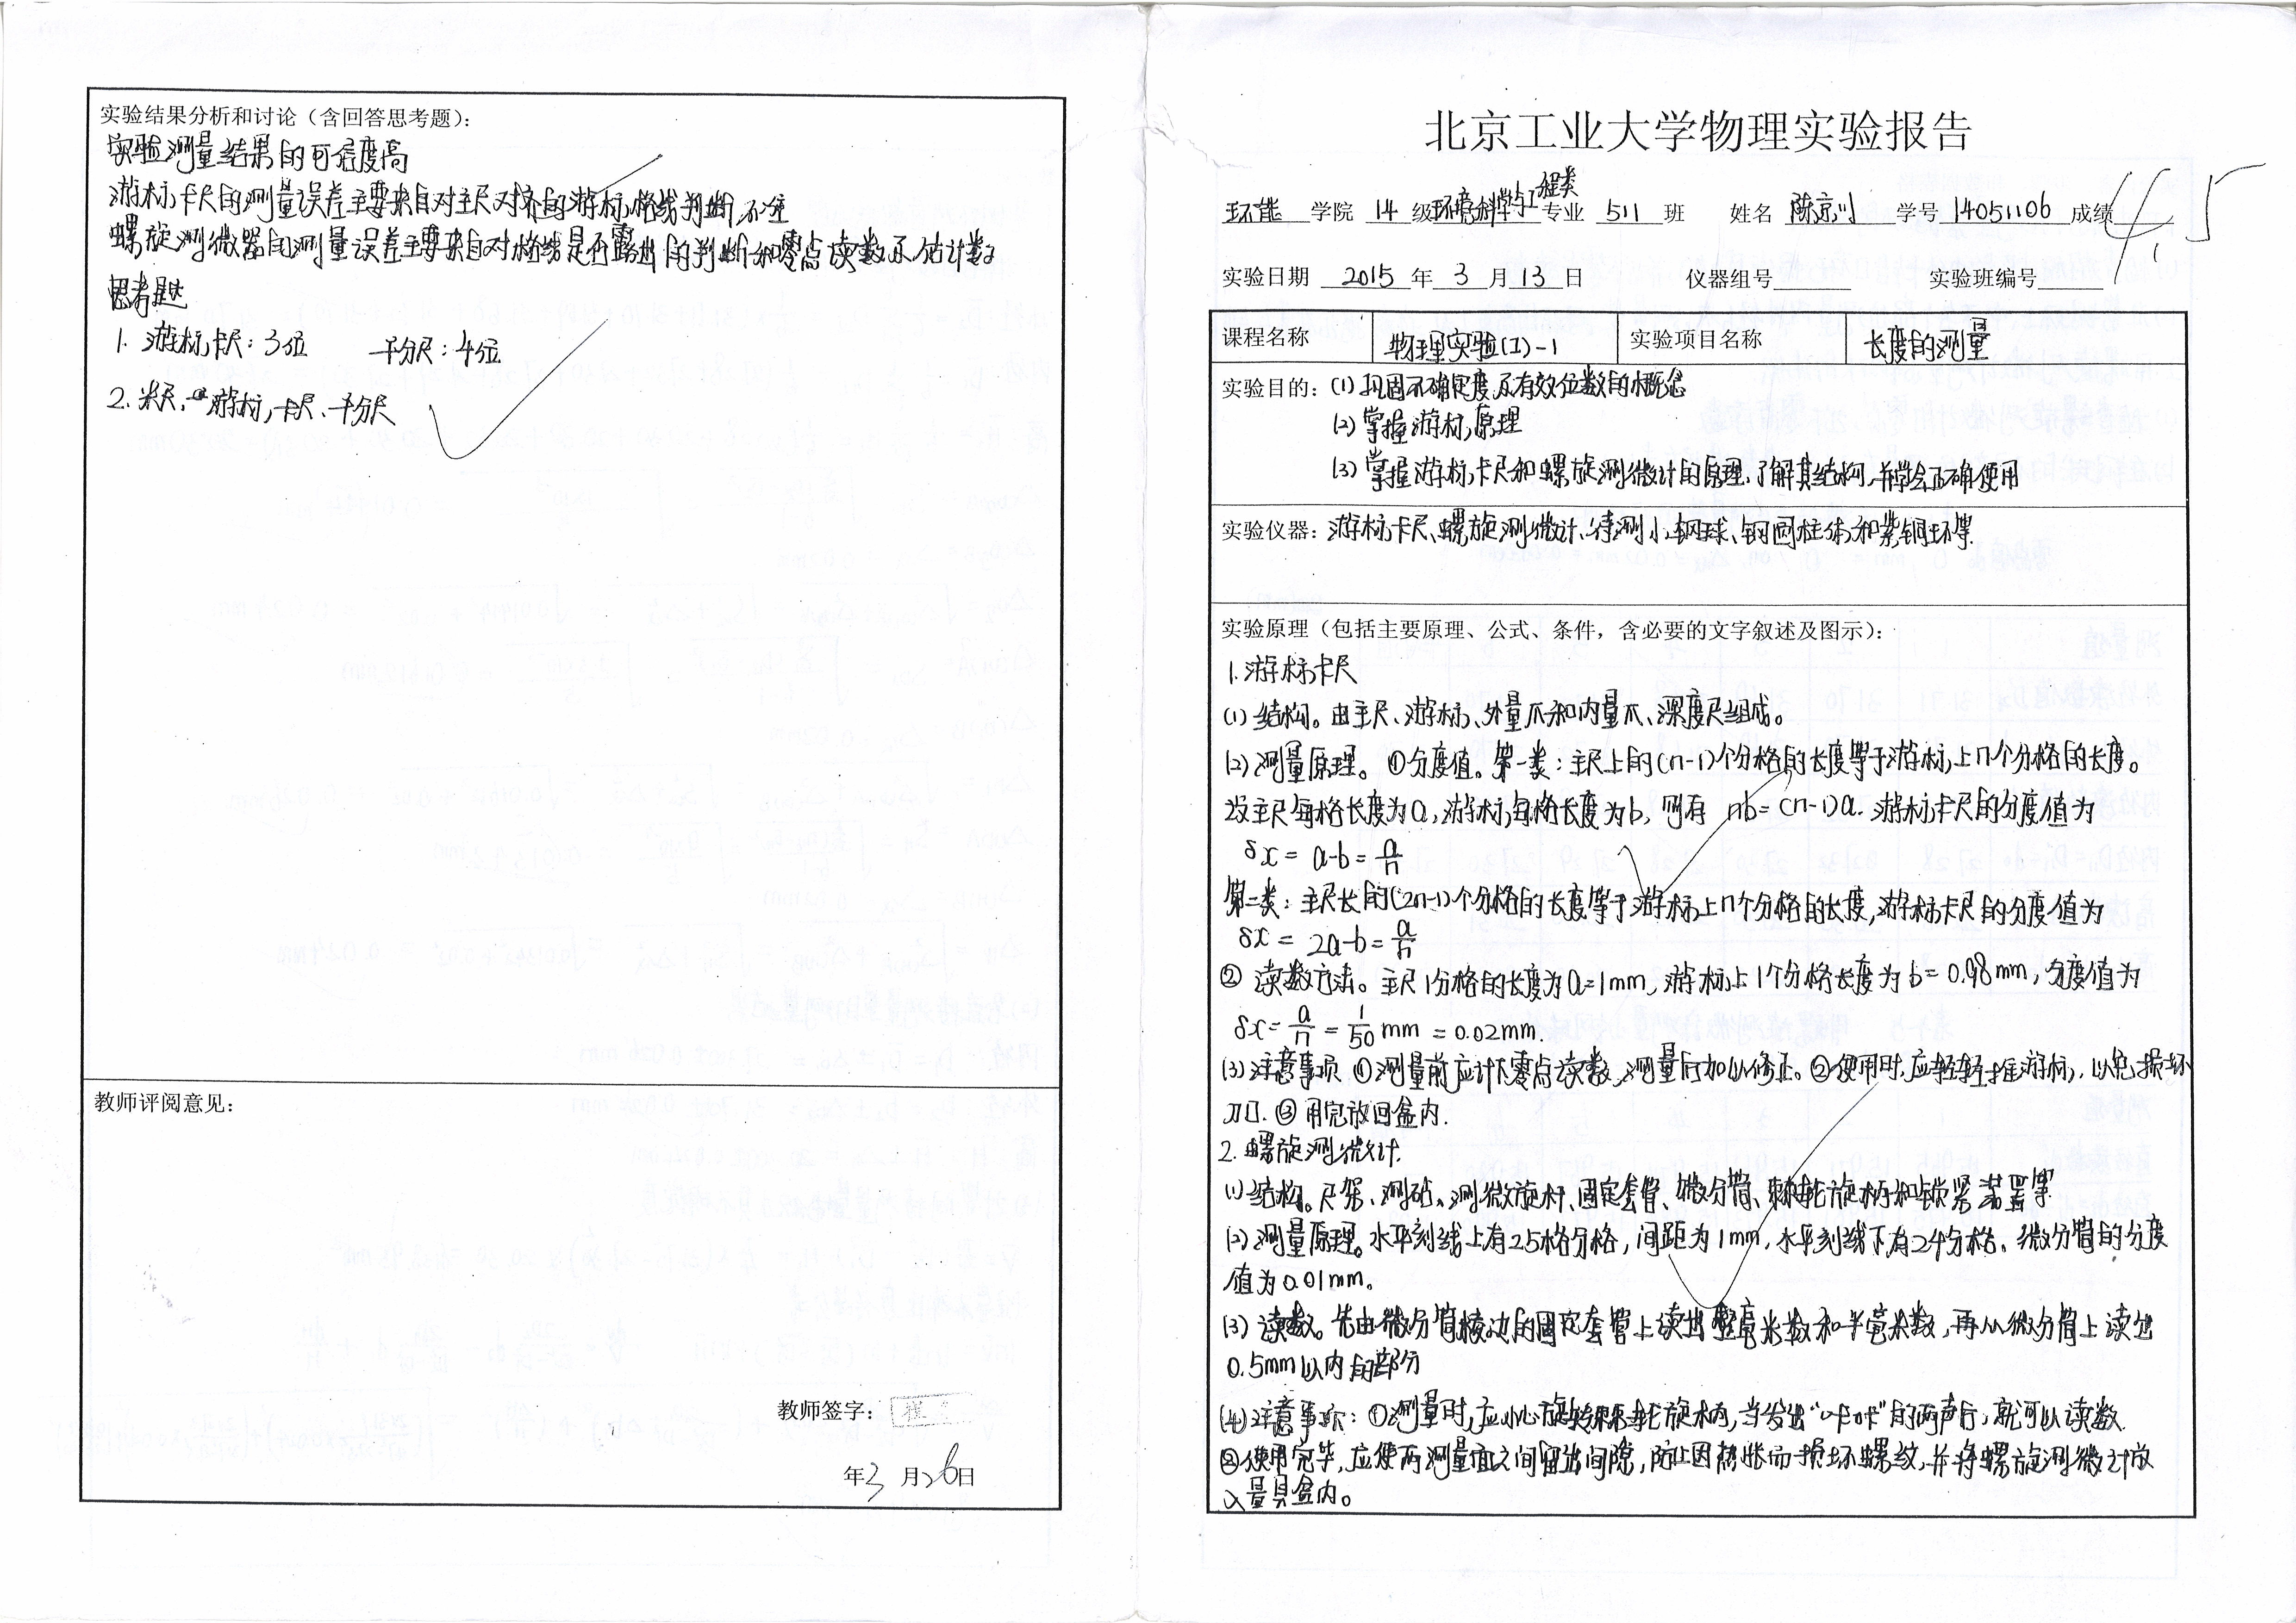 实验结果分析和讨论（含回答思考题）：
实验测量结果的可信度高
游标卡尺的测量误差主要来自对主尺对齐的游标格线判断不准
螺旋测微器的测量误差主要来自对格线是否露出的判断和零点读数及估计数
思考题
1. 游标卡尺：3位 千分尺：4位
2. 米尺、游标卡尺、千分尺
教师评阅意见：
教师签字：崔
年3月26日
北京工业大学物理实验报告
环能 学院 14 级 环境科学与工程类 专业 511 班 姓名 陈京川 学号 14051106 成绩 4.5
实验日期 2015 年 3 月 13 日 仪器组号 实验班编号
课程名称 物理实验(I)-1 实验项目名称 长度的测量
实验目的：(1) 巩固不确定度及有效位数的概念
(2) 掌握游标原理
(3) 掌握游标卡尺和螺旋测微计的原理，了解其结构，并学会正确使用
实验仪器：游标卡尺、螺旋测微计、待测小钢球、铜圆柱体和紫铜环等.
实验原理（包括主要原理、公式、条件，含必要的文字叙述及图示）：
1. 游标卡尺
(1) 结构。由主尺、游标、外量爪和内量爪、深度尺组成。
(2) 测量原理。①分度值。第一类：主尺上的(n-1)个分格的长度等于游标上n个分格的长度。
设主尺每格长度为a，游标每格长度为b，则有 nb=(n-1)a. 游标卡尺的分度值为
δx = a-b = a/n
第二类：主尺长的(2n-1)个分格的长度等于游标上n个分格的长度，游标卡尺的分度值为
δx = 2a-b = a/n
② 读数方法。主尺1分格的长度为a=1mm，游标上1个分格长度为b=0.98mm，分度值为
δx = a/n = 1/50 mm = 0.02mm.
(3) 注意事项 ①测量前应计下零点读数，测量后加以修正。②使用时，应轻轻推游标，以免损坏
刀口. ③用完放回盒内.
2. 螺旋测微计.
(1) 结构。尺架、测砧、测微旋杆、固定套管、微分筒、棘轮旋柄和锁紧装置等
(2) 测量原理。水平刻线上有25格分格，间距为1mm，水平刻线下有24分格。微分筒的分度
值为0.01mm。
(3) 读数。先由微分筒棱边的固定套管上读出整毫米数和半毫米数，再从微分筒上读出
0.5mm以内的部分
(4) 注意事项：①测量时，应小心旋转棘轮旋柄，当发出“咔咔”的两声后，就可以读数.
②使用完毕，应使两测量面之间留出间隙，防止因热胀而损坏螺纹，并将螺旋测微计放
入量具盒内。